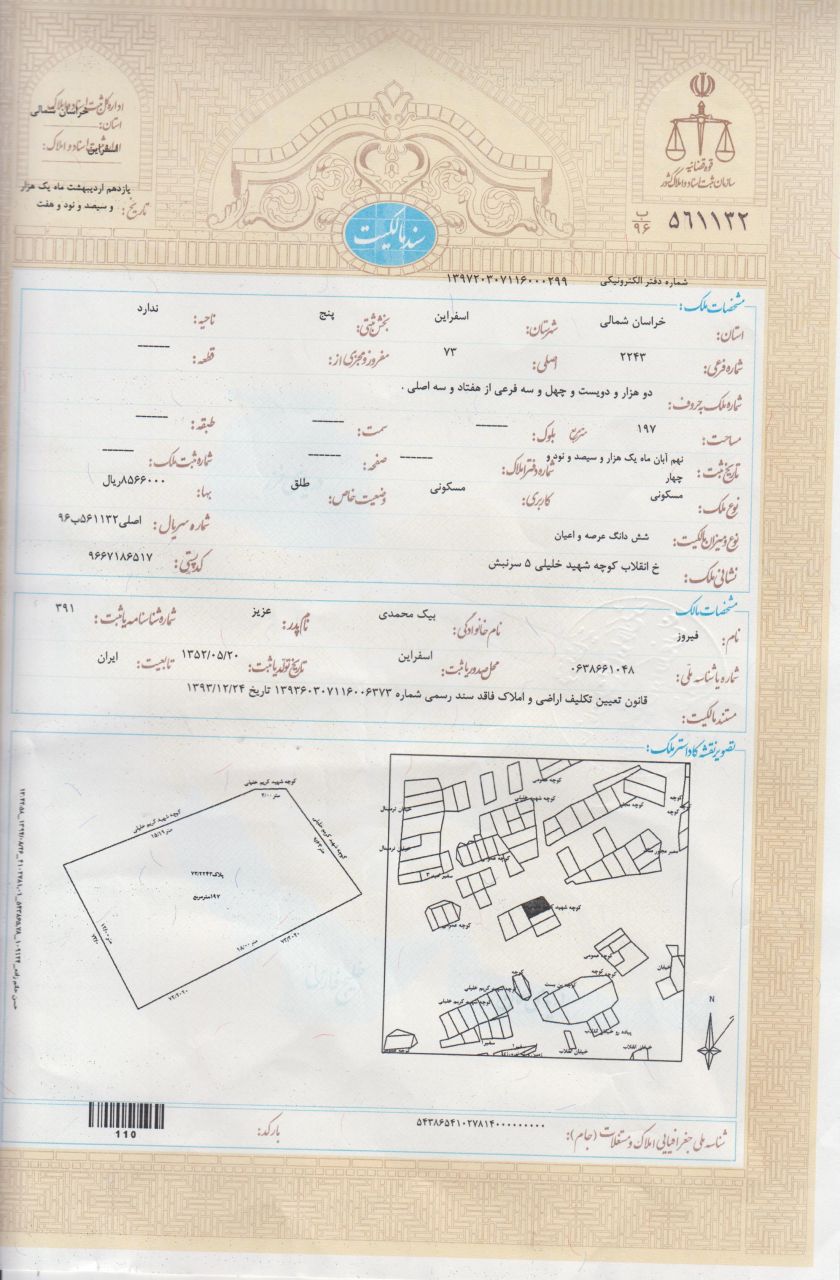 اداره کل ثبت اسناد و املاک
استان: خراسان شمالی
اداره ثبت اسناد و املاک: اسفراین
تاریخ: یازدهم اردیبهشت ماه یک هزار و سیصد و نود و هفت
قوه قضائیه
سازمان ثبت اسناد و املاک کشور
۵۶۱۱۳۲ ب ۹۶
سند مالکیت
شماره دفتر الکترونیکی ۱۳۹۷۲۰۳۰۷۱۱۶۰۰۰۲۹۹
مشخصات ملک:
استان: خراسان شمالی شهرستان: اسفراین بخش ثبتی: پنج ناحیه: ندارد
شماره فرعی: ۲۲۴۳ اصلی: ۷۳ مفروز و مجزی از: قطعه: ------
شماره ملک به حروف: دو هزار و دویست و چهل و سه فرعی از هفتاد و سه اصلی .
مساحت: ۱۹۷ متر مربع بلوک: ------ سمت: ------ طبقه: ------
تاریخ ثبت: نهم آبان ماه یک هزار و سیصد و نود و چهار شماره دفتر املاک: ------ صفحه: ------ شماره ثبت ملک: ------
نوع ملک: مسکونی کاربری: مسکونی وضعیت خاص: طلق بها: ۸۵۶۶۰۰۰ریال
نوع و میزان مالکیت: شش دانگ عرصه و اعیان شماره سریال: اصلی۵۶۱۱۳۲ب۹۶
نشانی ملک: خ انقلاب کوچه شهید خلیلی ۵ سرنبش کد پستی: ۹۶۶۷۱۸۶۵۱۷
مشخصات مالک
نام: فیروز نام خانوادگی: بیک محمدی نام پدر: عزیز شماره شناسنامه یا ثبت: ۳۹۱
شماره یا شناسه ملی: ۰۶۳۸۶۶۱۰۴۸ محل صدور یا ثبت: اسفراین تاریخ تولد یا ثبت: ۱۳۵۲/۰۵/۲۰ تابعیت: ایران
مستند مالکیت: قانون تعیین تکلیف اراضی و املاک فاقد سند رسمی شماره ۱۳۹۳۶۰۳۰۷۱۱۶۰۰۶۳۷۳ تاریخ ۱۳۹۳/۱۲/۲۴
تصویر نقشه کاداستر ملک:
کوچه شهید کریم خلیلی
۲/۰۰ متر
کوچه شهید کریم خلیلی
۱۵/۱۹ متر
کوچه شهید کریم خلیلی
پلاک۷۳/۲۲۴۳
۱۹۷مترمربع
کوچه عمومی
کوچه شهید خلیلی
خیابان ترمینال
خیابان ترمینال
کوچه
کوچه شهید کریم خلیلی
کوچه عمومی
کوچه بن بست
خیابان
خیابان انقلاب
N
شناسه ملی جغرافیایی املاک و مستغلات (جام): ۵۴۳۸۶۵۴۱۰۲۷۸۱۴۰۰۰۰۰۰۰۰۰
بارکد:
110